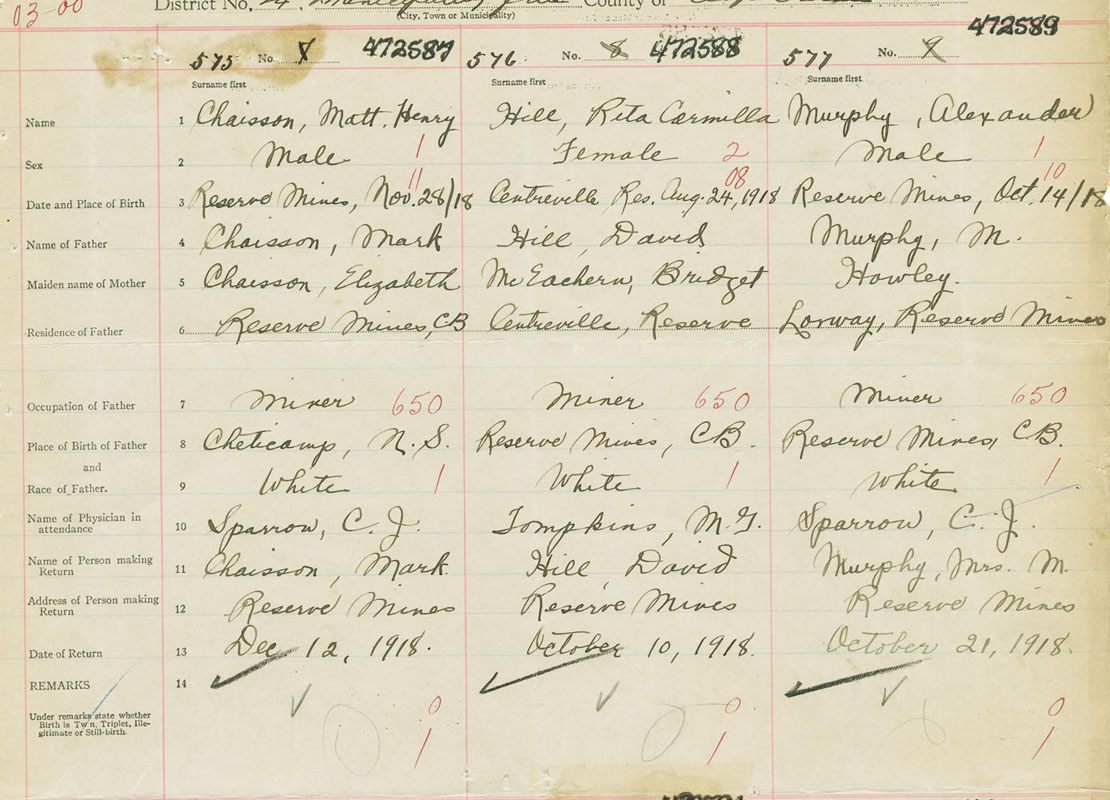 03-00
District No. 24, Municipality County of
(City, Town or Municipality)
575 No. 7 472587 576 No. 8 472588 577 No. 9 472589
Surname first Surname first Surname first
Name 1 Chaisson, Matt. Henry Hill, Rita Carmilla Murphy, Alexander
Sex 2 Male 1 Female 2 Male 1
11 08 10
Date and Place of Birth 3 Reserve Mines, Nov. 28/18 Centreville Res. Aug. 24, 1918 Reserve Mines, Oct. 14/18
Name of Father 4 Chaisson, Mark Hill, David Murphy, M.
Maiden name of Mother 5 Chaisson, Elizabeth McEachern, Bridget Howley.
Residence of Father 6 Reserve Mines, CB Centreville, Reserve Lorway, Reserve Mines
Occupation of Father 7 Miner 650 Miner 650 Miner 650
Place of Birth of Father 8 Cheticamp, N.S. Reserve Mines, CB. Reserve Mines, CB.
and
Race of Father. 9 White 1 White 1 White 1
Name of Physician in
attendance 10 Sparrow, C. J. Tompkins, M.G. Sparrow, C. J.
Name of Person making
Return 11 Chaisson, Mark Hill, David Murphy, Mrs. M.
Address of Person making
Return 12 Reserve Mines Reserve Mines Reserve Mines
Date of Return 13 Dec 12, 1918. October 10, 1918. October 21, 1918.
REMARKS 14
0 0 0
Under remarks state whether
Birth is Twin, Triplet, Ille-
gitimate or Still-birth.
1 1 1